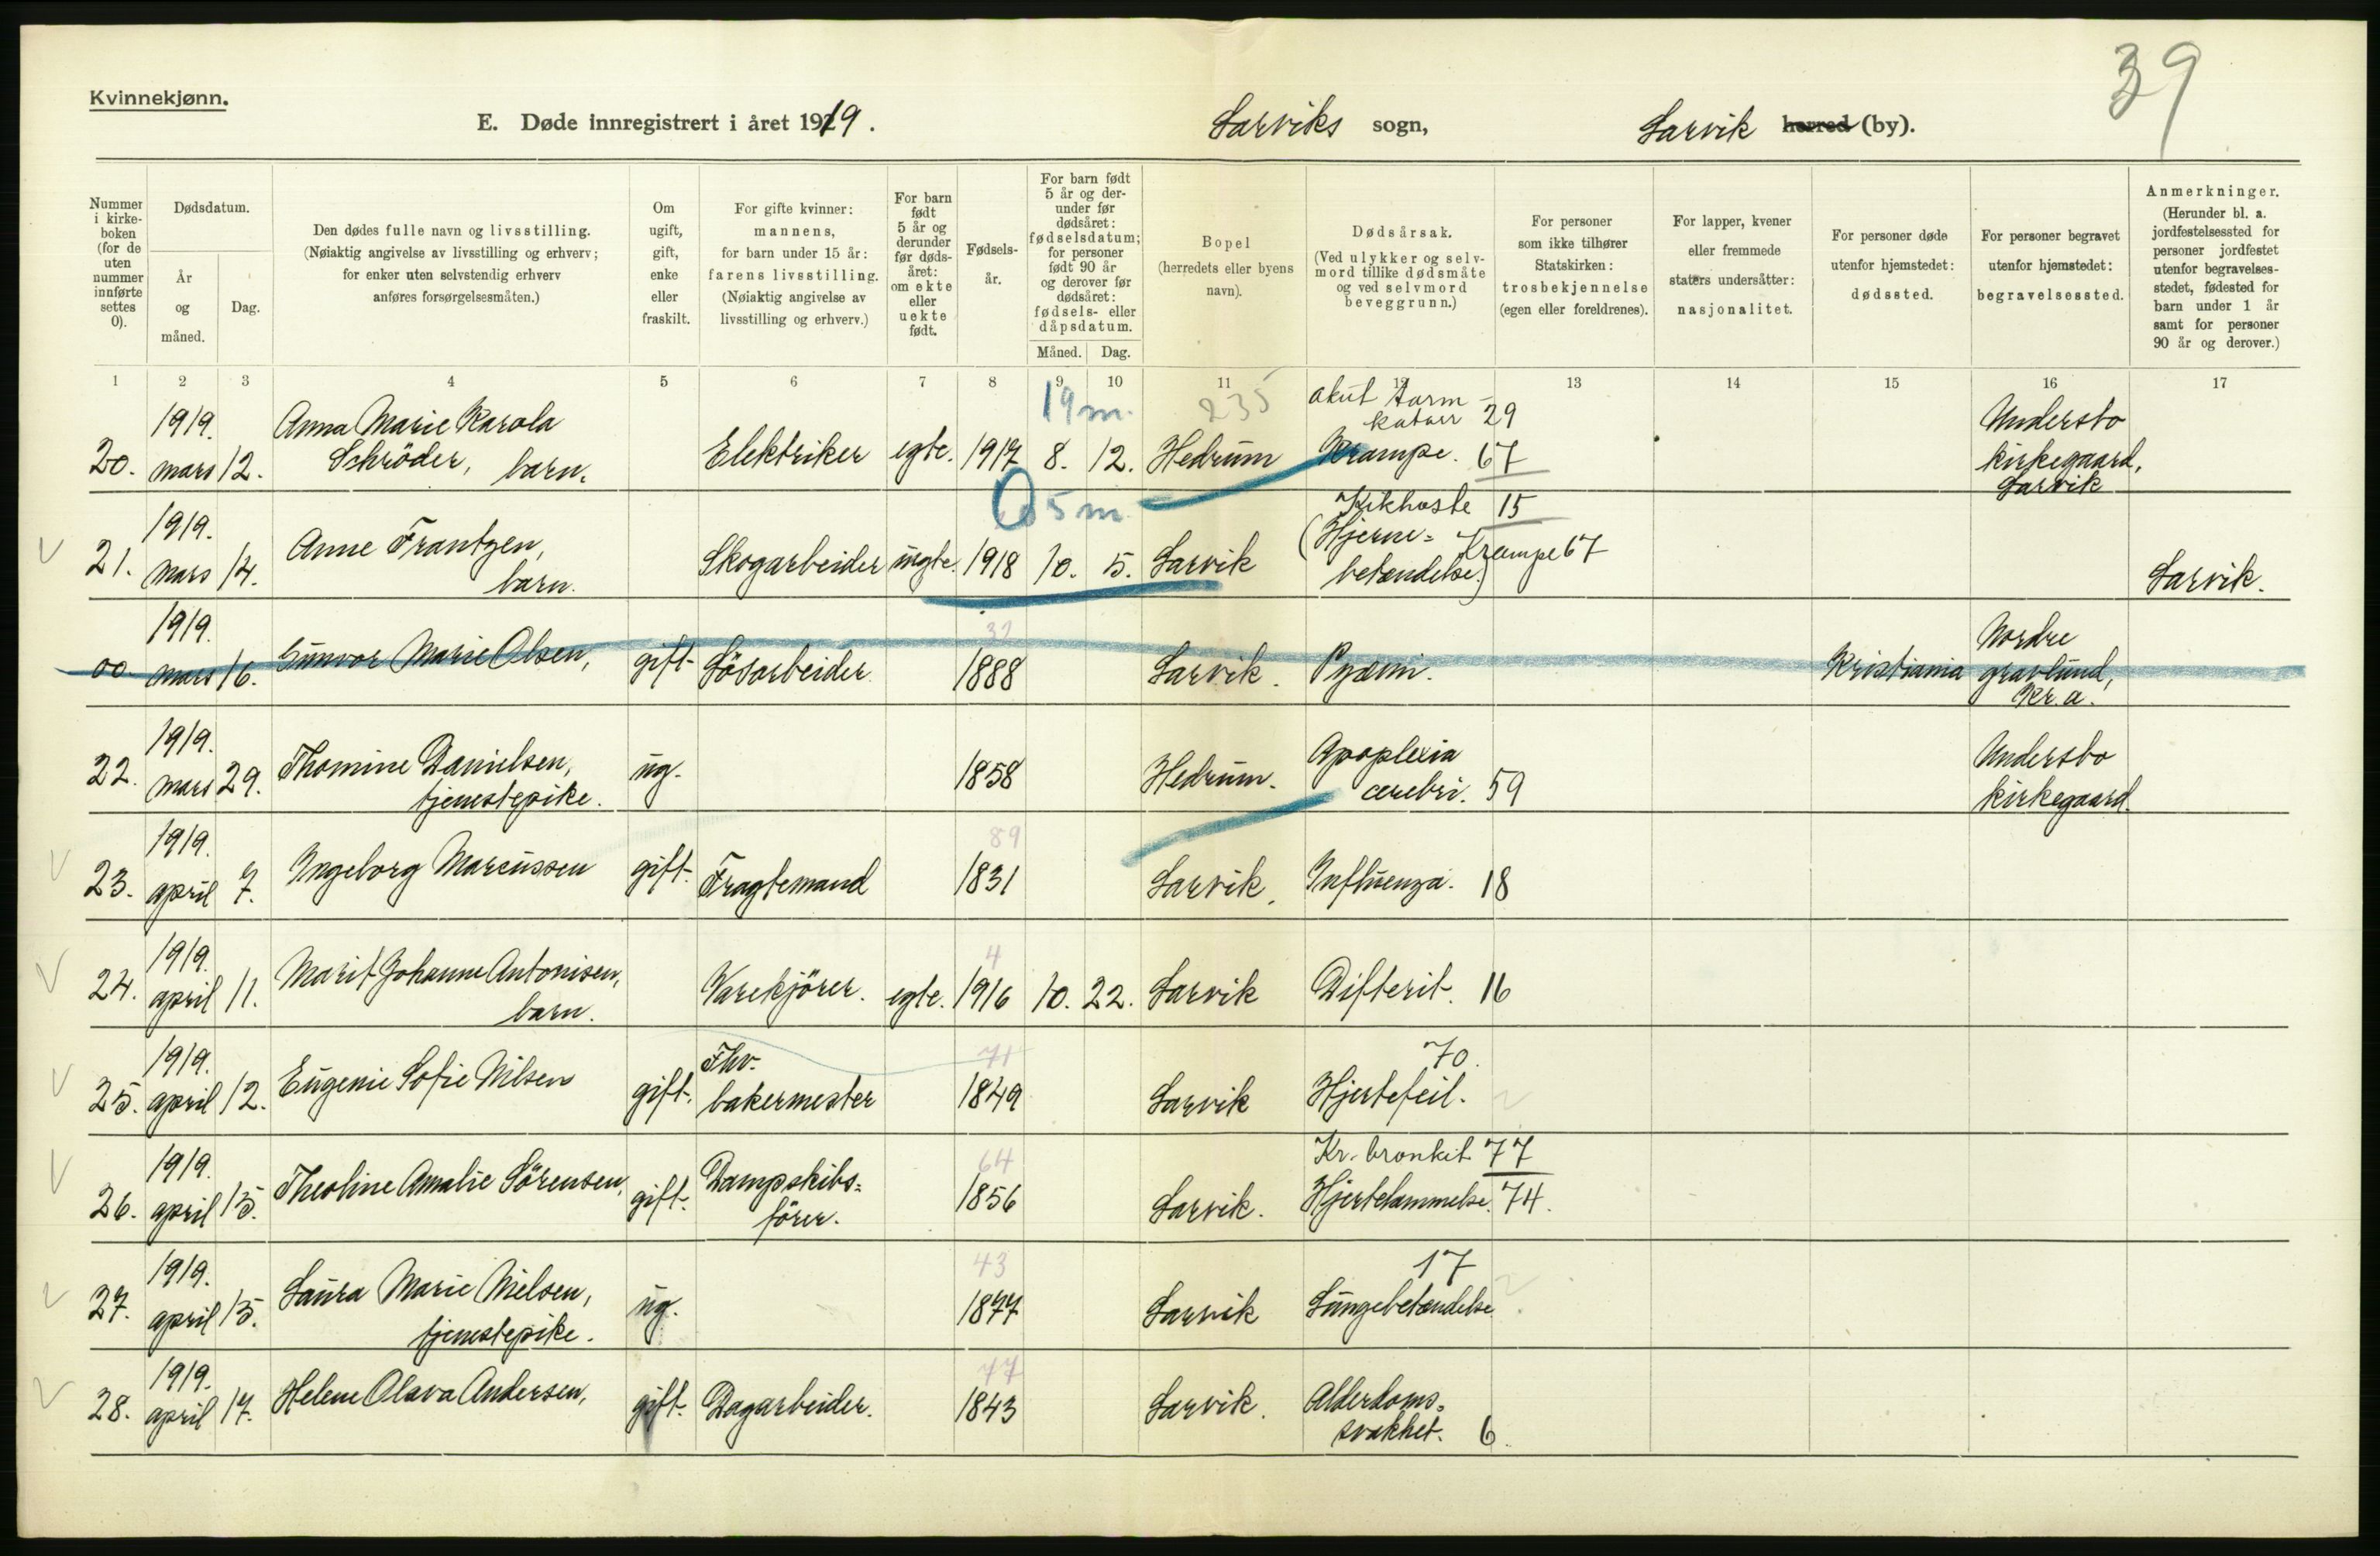 39
Kvinnekjønn.
E. Døde innregistrert i året 1919. Larviks sogn, Larvik herred (by).
Nummer i kirkeboken (for de uten nummer innførte settes 0).
Dødsdatum.
År og måned.
Dag.
Den dødes fulle navn og livsstilling.
(Nøiaktig angivelse av livsstilling og erhverv; for enker uten selvstendig erhverv anføres forsørgelsesmåten.)
Om ugift, gift, enke eller fraskilt.
For gifte kvinner: mannens, for barn under 15 år: farens livsstilling.
(Nøiaktig angivelse av livsstilling og erhverv.)
For barn født 5 år og derunder før dødsåret: om ekte eller uekte født.
Fødselsår.
For barn født 5 år og derunder før dødsåret: fødselsdatum; for personer født 90 år og derover før dødsåret: fødsels- eller dåpsdatum.
Måned. Dag.
Bopel (herredets eller byens navn).
Dødsårsak.
(Ved ulykker og selvmord tillike dødsmåte og ved selvmord beveggrunn.)
For personer som ikke tilhører Statskirken: trosbekjennelse (egen eller foreldrenes).
For lapper, kvener eller fremmede staters undersåtter: nasjonalitet.
For personer døde utenfor hjemstedet: dødssted.
For personer begravet utenfor hjemstedet: begravelsessted.
Anmerkninger.
(Herunder bl. a. jordfestelsessted for personer jordfestet utenfor begravelsesstedet, fødested for barn under 1 år samt for personer 90 år og derover.)
1 2 3 4 5 6 7 8 9 10 11 12 13 14 15 16 17
19 m. 235
20. 1919. mars 12. Anna Marie Karola Schröder, barn. Elektriker egte. 1917 8. 12. Hedrum akut tarmkatarr 29 Krampe. 67 Undersbo kirkegaard, Larvik
0 5 m
21. 1919. mars 14. Anne Frantzen, barn. Skogarbeider uegte. 1918 10. 5. Larvik Kikhoste 15 (Hjerne= betændelse.) Krampe 67 Larvik.
00. 1919. mars 16. Gunvor Marie Olsen, gift- Løsarbeider. 1888 Larvik. Pyæmi. Kristiania Nordre gravlund, Kr.a.
22. 1919. mars 29. Thomine Danielsen, tjenestepike. ug. 1858 Hedrum. Apoplexia cerebri. 59 Undersbo kirkegaard.
23. 1919. april 7. Ingeborg Marcussen gift. Fragtemand 89 1831 Larvik. Influenza. 18
24. 1919. april 11. Marit Johanne Antonisen, barn. Varekjörer. egte. 4 1916 10. 22. Larvik Difterit. 16
25. 1919. april 12. Eugenie Sofie Nilsen gift. Fhv. bakermester 71 1849 Larvik 70. Hjertefeil.
26. 1919. april 15. Theoline Amalie Sörensen, gift. Dampskibs= förer. 64 1856 Larvik. Kr. bronkit 77 Hjertelammelse. 74.
27. 1919. april 15. Laura Marie Nielsen, tjenestepike. ug. 43 1877 Larvik 17 Lungebetændelse.
28. 1919. april 17. Helene Olava Andersen, gift. Dagarbeider. 77 1843 Larvik. Alderdoms= svakhet. 6.